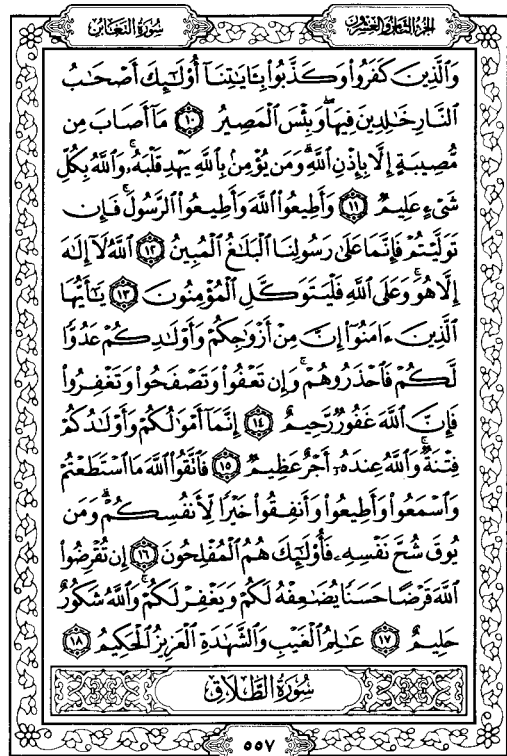 سُورَةُ التَّغَابُنِ
الجُزْءُ الثَّامِنُ وَالعِشْرُونَ
وَٱلَّذِينَ كَفَرُواْ وَكَذَّبُواْ بِـَٔايَـٰتِنَآ أُوْلَـٰٓئِكَ أَصْحَـٰبُ
ٱلنَّارِ خَـٰلِدِينَ فِيهَا ۖ وَبِئْسَ ٱلْمَصِيرُ ١٠ مَآ أَصَابَ مِن
مُّصِيبَةٍ إِلَّا بِإِذْنِ ٱللَّهِ ۗ وَمَن يُؤْمِنۢ بِٱللَّهِ يَهْدِ قَلْبَهُۥ ۚ وَٱللَّهُ بِكُلِّ
شَىْءٍ عَلِيمٌ ١١ وَأَطِيعُواْ ٱللَّهَ وَأَطِيعُواْ ٱلرَّسُولَ ۚ فَإِن
تَوَلَّيْتُمْ فَإِنَّمَا عَلَىٰ رَسُولِنَا ٱلْبَلَـٰغُ ٱلْمُبِينُ ١٢ ٱللَّهُ لَآ إِلَـٰهَ
إِلَّا هُوَ ۚ وَعَلَى ٱللَّهِ فَلْيَتَوَكَّلِ ٱلْمُؤْمِنُونَ ١٣ يَـٰٓأَيُّهَا
ٱلَّذِينَ ءَامَنُوٓاْ إِنَّ مِنْ أَزْوَٰجِكُمْ وَأَوْلَـٰدِكُمْ عَدُوًّا
لَّكُمْ فَٱحْذَرُوهُمْ ۚ وَإِن تَعْفُواْ وَتَصْفَحُواْ وَتَغْفِرُواْ
فَإِنَّ ٱللَّهَ غَفُورٌ رَّحِيمٌ ١٤ إِنَّمَآ أَمْوَٰلُكُمْ وَأَوْلَـٰدُكُمْ
فِتْنَةٌ ۚ وَٱللَّهُ عِندَهُۥٓ أَجْرٌ عَظِيمٌ ١٥ فَٱتَّقُواْ ٱللَّهَ مَا ٱسْتَطَعْتُمْ
وَٱسْمَعُواْ وَأَطِيعُواْ وَأَنفِقُواْ خَيْرًا لِّأَنفُسِكُمْ ۗ وَمَن
يُوقَ شُحَّ نَفْسِهِۦ فَأُوْلَـٰٓئِكَ هُمُ ٱلْمُفْلِحُونَ ١٦ إِن تُقْرِضُواْ
ٱللَّهَ قَرْضًا حَسَنًا يُضَـٰعِفْهُ لَكُمْ وَيَغْفِرْ لَكُمْ ۚ وَٱللَّهُ شَكُورٌ
حَلِيمٌ ١٧ عَـٰلِمُ ٱلْغَيْبِ وَٱلشَّهَـٰدَةِ ٱلْعَزِيزُ ٱلْحَكِيمُ ١٨
سُورَةُ الطَّلَاقِ
٥٥٧